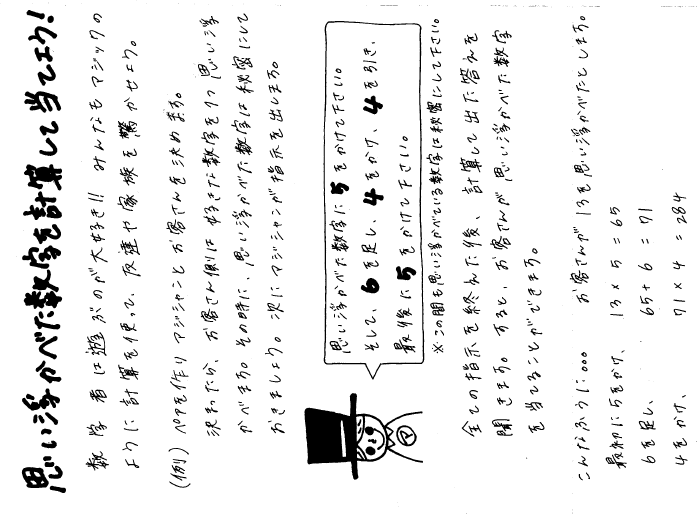 思い浮かべた数字を計算して当てよう！
数学者は遊ぶのが大好き!! みんなもマジックの
ように計算を使って、友達や家族を驚かせよう。
(例) ペアを作り マジシャンとお客さんを決めます。
決まったら、お客さん側は好きな数字を1つ思い浮
かべます。その時に、思い浮かべた数字は秘密にして
おきましょう。次にマジシャンが指示を出します。
思い浮かべた数字に 5 をかけて下さい。
そして、6 を足し、4 をかけ、4 を引き、
最後に 5 をかけて下さい。
※この間も思い浮かべている数字は秘密にして下さい。
全ての指示を終えた後、計算して出た答えを
聞きます。すると、お客さんが思い浮かべた数字
を当てることができます。
こんなふうに… お客さんが13を思い浮かべたとします。
最初に5をかけ、 13 × 5 = 65
6を足し、 65 + 6 = 71
4をかけ、 71 × 4 = 284